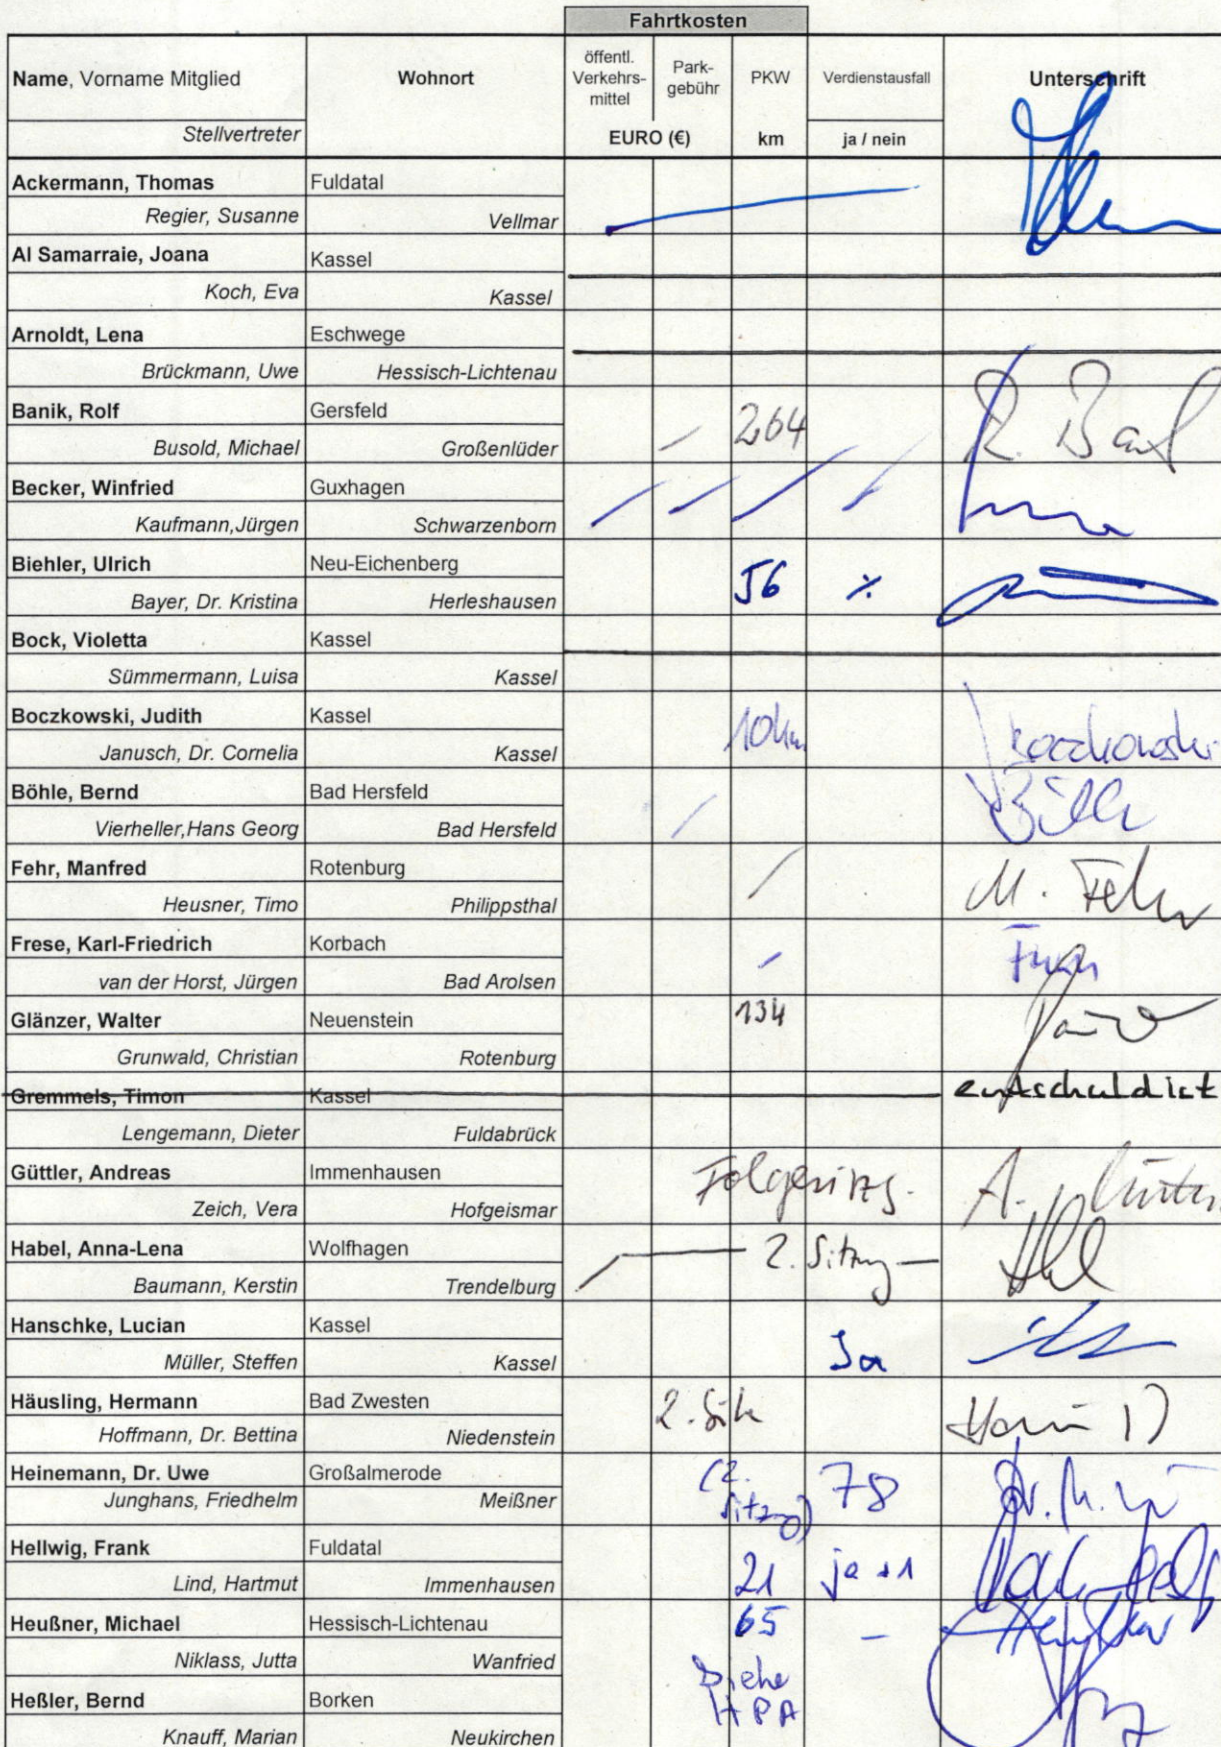 Fahrtkosten
Name, Vorname Mitglied Wohnort öffentl. Verkehrs-mittel Park-gebühr PKW Verdienstausfall Unterschrift
Stellvertreter EURO (€) km ja / nein
Ackermann, Thomas Fuldatal
Regier, Susanne Vellmar
Al Samarraie, Joana Kassel
Koch, Eva Kassel
Arnoldt, Lena Eschwege
Brückmann, Uwe Hessisch-Lichtenau
Banik, Rolf Gersfeld 264
Busold, Michael Großenlüder
Becker, Winfried Guxhagen
Kaufmann,Jürgen Schwarzenborn
Biehler, Ulrich Neu-Eichenberg 56 ⁒
Bayer, Dr. Kristina Herleshausen
Bock, Violetta Kassel
Sümmermann, Luisa Kassel
Boczkowski, Judith Kassel 10km Boczkowski
Janusch, Dr. Cornelia Kassel
Böhle, Bernd Bad Hersfeld
Vierheller,Hans Georg Bad Hersfeld
Fehr, Manfred Rotenburg M. Fehr
Heusner, Timo Philippsthal
Frese, Karl-Friedrich Korbach
van der Horst, Jürgen Bad Arolsen
Glänzer, Walter Neuenstein 134
Grunwald, Christian Rotenburg
Gremmels, Timon Kassel entschuldigt
Lengemann, Dieter Fuldabrück
Güttler, Andreas Immenhausen
Zeich, Vera Hofgeismar
Habel, Anna-Lena Wolfhagen 2. Sitzung
Baumann, Kerstin Trendelburg
Hanschke, Lucian Kassel Ja
Müller, Steffen Kassel
Häusling, Hermann Bad Zwesten 2.
Hoffmann, Dr. Bettina Niedenstein
Heinemann, Dr. Uwe Großalmerode (2. 78
Junghans, Friedhelm Meißner
Hellwig, Frank Fuldatal 21 ja
Lind, Hartmut Immenhausen
Heußner, Michael Hessisch-Lichtenau 65 –
Niklass, Jutta Wanfried
Heßler, Bernd Borken Siehe HPA
Knauff, Marian Neukirchen